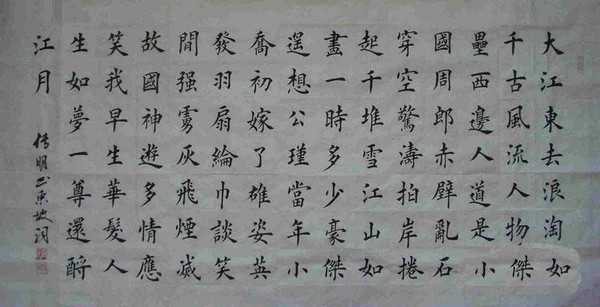 大江東去浪淘如
千古風流人物傑
壘西邊人道是小
國周郎赤壁亂石
穿空驚濤拍岸捲
起千堆雪江山如
畫一時多少豪傑
遥想公瑾當年小
喬初嫁了雄姿英
發羽扇綸巾談笑
間强虜灰飛煙滅
故國神遊多情應
笑我早生華髮人
生如夢一尊還酹
江月
明書東坡詞